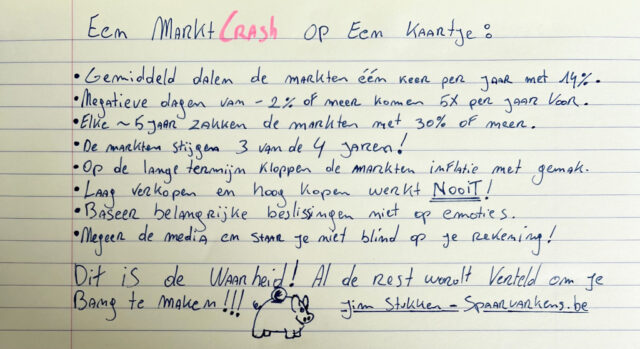 Een Markt Crash op Een Kaartje:
• Gemiddeld dalen de markten één keer per jaar met 14%.
• Negatieve dagen van -2% of meer komen 5x per jaar voor.
• Elke ~5 jaar zakken de markten met 30% of meer.
• De markten stijgen 3 van de 4 jaren!
• Op de lange termijn kloppen de markten inflatie met gemak.
• Laag verkopen en hoog kopen werkt NOOIT!
• Baseer belangrijke beslissingen niet op emoties.
• Negeer de media en staar je niet blind op je rekening!
Dit is de Waarheid! Al de rest wordt verteld om je
Bang te maken!!! Jim Stukken - Spaarvarkens.be